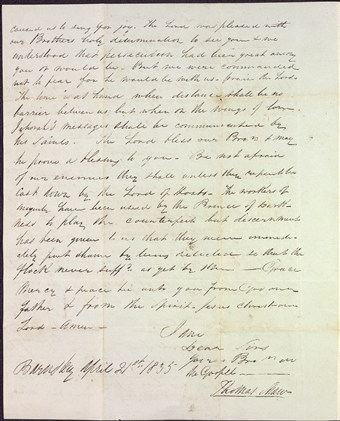 caused us to sing for joy. The Lord was pleased with
our Brothers holy determination to see you & we
understood that persecution had been great among
you or would be. But we were commanded
not to fear for he would be with us praise the Lord.
The time is at hand when distance shall be no
barrier between us but when on the wings of love
Jehovah's messages shall be communicated by
his Saints. The Lord bless our Bro & may
he prove a blessing to you. Be not afraid
of our enemies they shall unless they repent be
cast down by the Lord of Hosts. The workers of
iniquity have been used by the Prince of dark
ness to play the counterfeit but discernment
has been given to us that they were immedi
ately put shame by being detected so that the
flock never suffd as yet by them — Grace
Mercy & peace be unto you from God our
Father & from the Spirit Jesus Christ our
Lord — Amen —
I am
Dear Sirs
your Bro in
the Gospel —
Barnsley April 21st 1835
Thomas Shaw